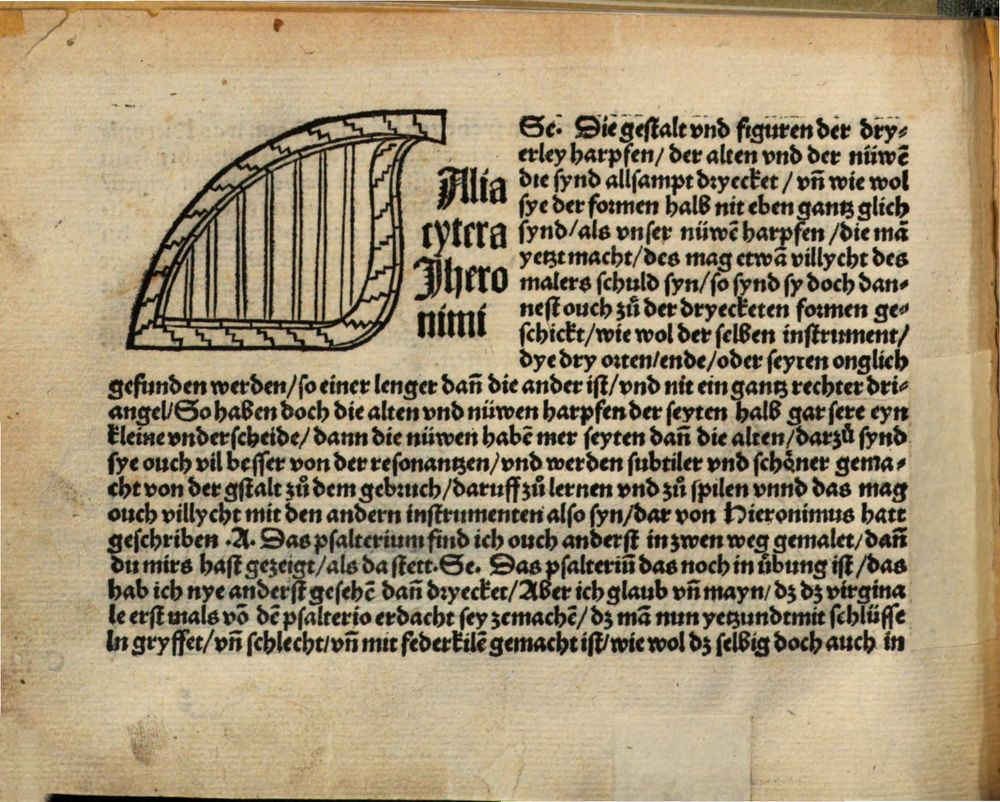 Alia
cytera
Jhero
nimi
Se. Die gestalt vnd figuren der dry⸗
erley harpfen/ der alten vnd der nüwē
die synd allsampt dryecket / vn̄ wie wol
sye der formen halb nit eben gantz glich
synd/als vnser nüwē harpfen /die mā
yetzt macht/des mag etwā villycht des
malers schuld syn/so synd sy doch dan⸗
nest ouch zů der dryecketen formen ge⸗
schickt/wie wol der selben instrument/
dye dry orten/ende/oder seyten onglich
gefunden werden/so einer lenger dan̄ die ander ist/vnd nit ein gantz rechter dri⸗
angel/So haben doch die alten vnd nüwen harpfen der seyten halb gar sere eyn
kleine vnderscheide/ dann die nüwen habē mer seyten dan̄ die alten/darzů synd
sye ouch vil besser von der resonantzen/vnd werden subtiler vnd schöner gema⸗
cht von der gstalt zů dem gebruch/daruff zů lernen vnd zů spilen vnnd das mag
ouch villycht mit den andern instrumenten also syn/dar von Hieronimus hatt
geschriben .A. Das psalterium find ich ouch anderst in zwen weg gemalet/dan̄
du mirs hast gezeigt/als da stett.Se. Das psalteriū das noch in ůbung ist /das
hab ich nye anderst gesehē dan̄ dryecket/Aber ich glaub vn̄ mayn/dz dz virgina
le erst mals vō dē psalterio erdacht sey zemachē/dz mā nun yetzundt mit schlüsse
ln gryffet/vn̄ schlecht/vn̄ mit federkilē gemacht ist/wie wol dz selbig doch auch in